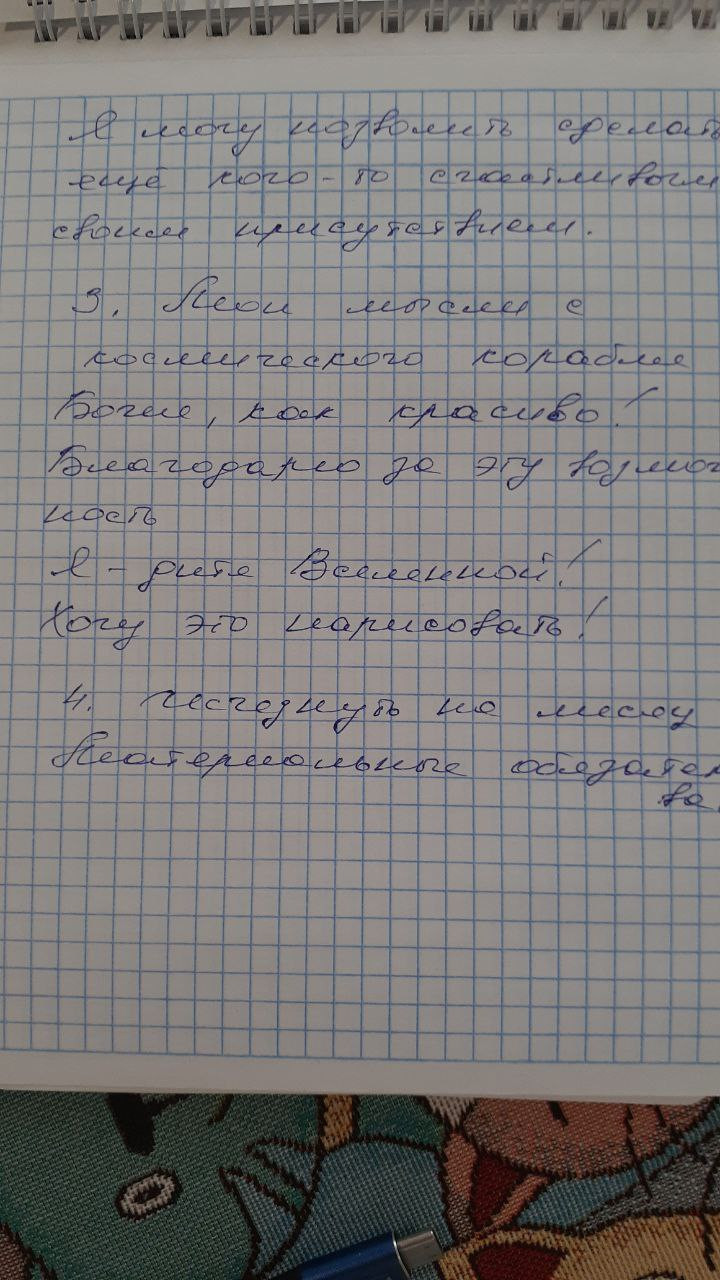 Я могу позволить сделать
ещё кого-то счастливым
своим присутствием.
3. Мои мысли с
космического корабля
Боже, как красиво!
Благодарю за эту возмож
ность
Я - дитя Вселенной!
Хочу это нарисовать!
4. Исчезнуть на месяц
Материальные обязатель
ва